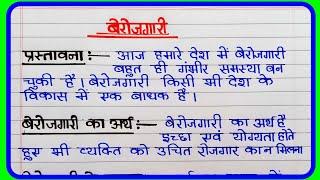 बेरोजगारी
प्रस्तावना :— आज हमारे देश में बेरोजगारी
बहुत ही गंभीर समस्या बन
चुकी है। बेरोजगारी किसी भी देश के
विकास में एक बाधक है।
बेरोजगारी का अर्थ :— बेरोजगारी का अर्थ है
इच्छा एवं योग्यता होते
हुए भी व्यक्ति को उचित रोजगार का न मिलना